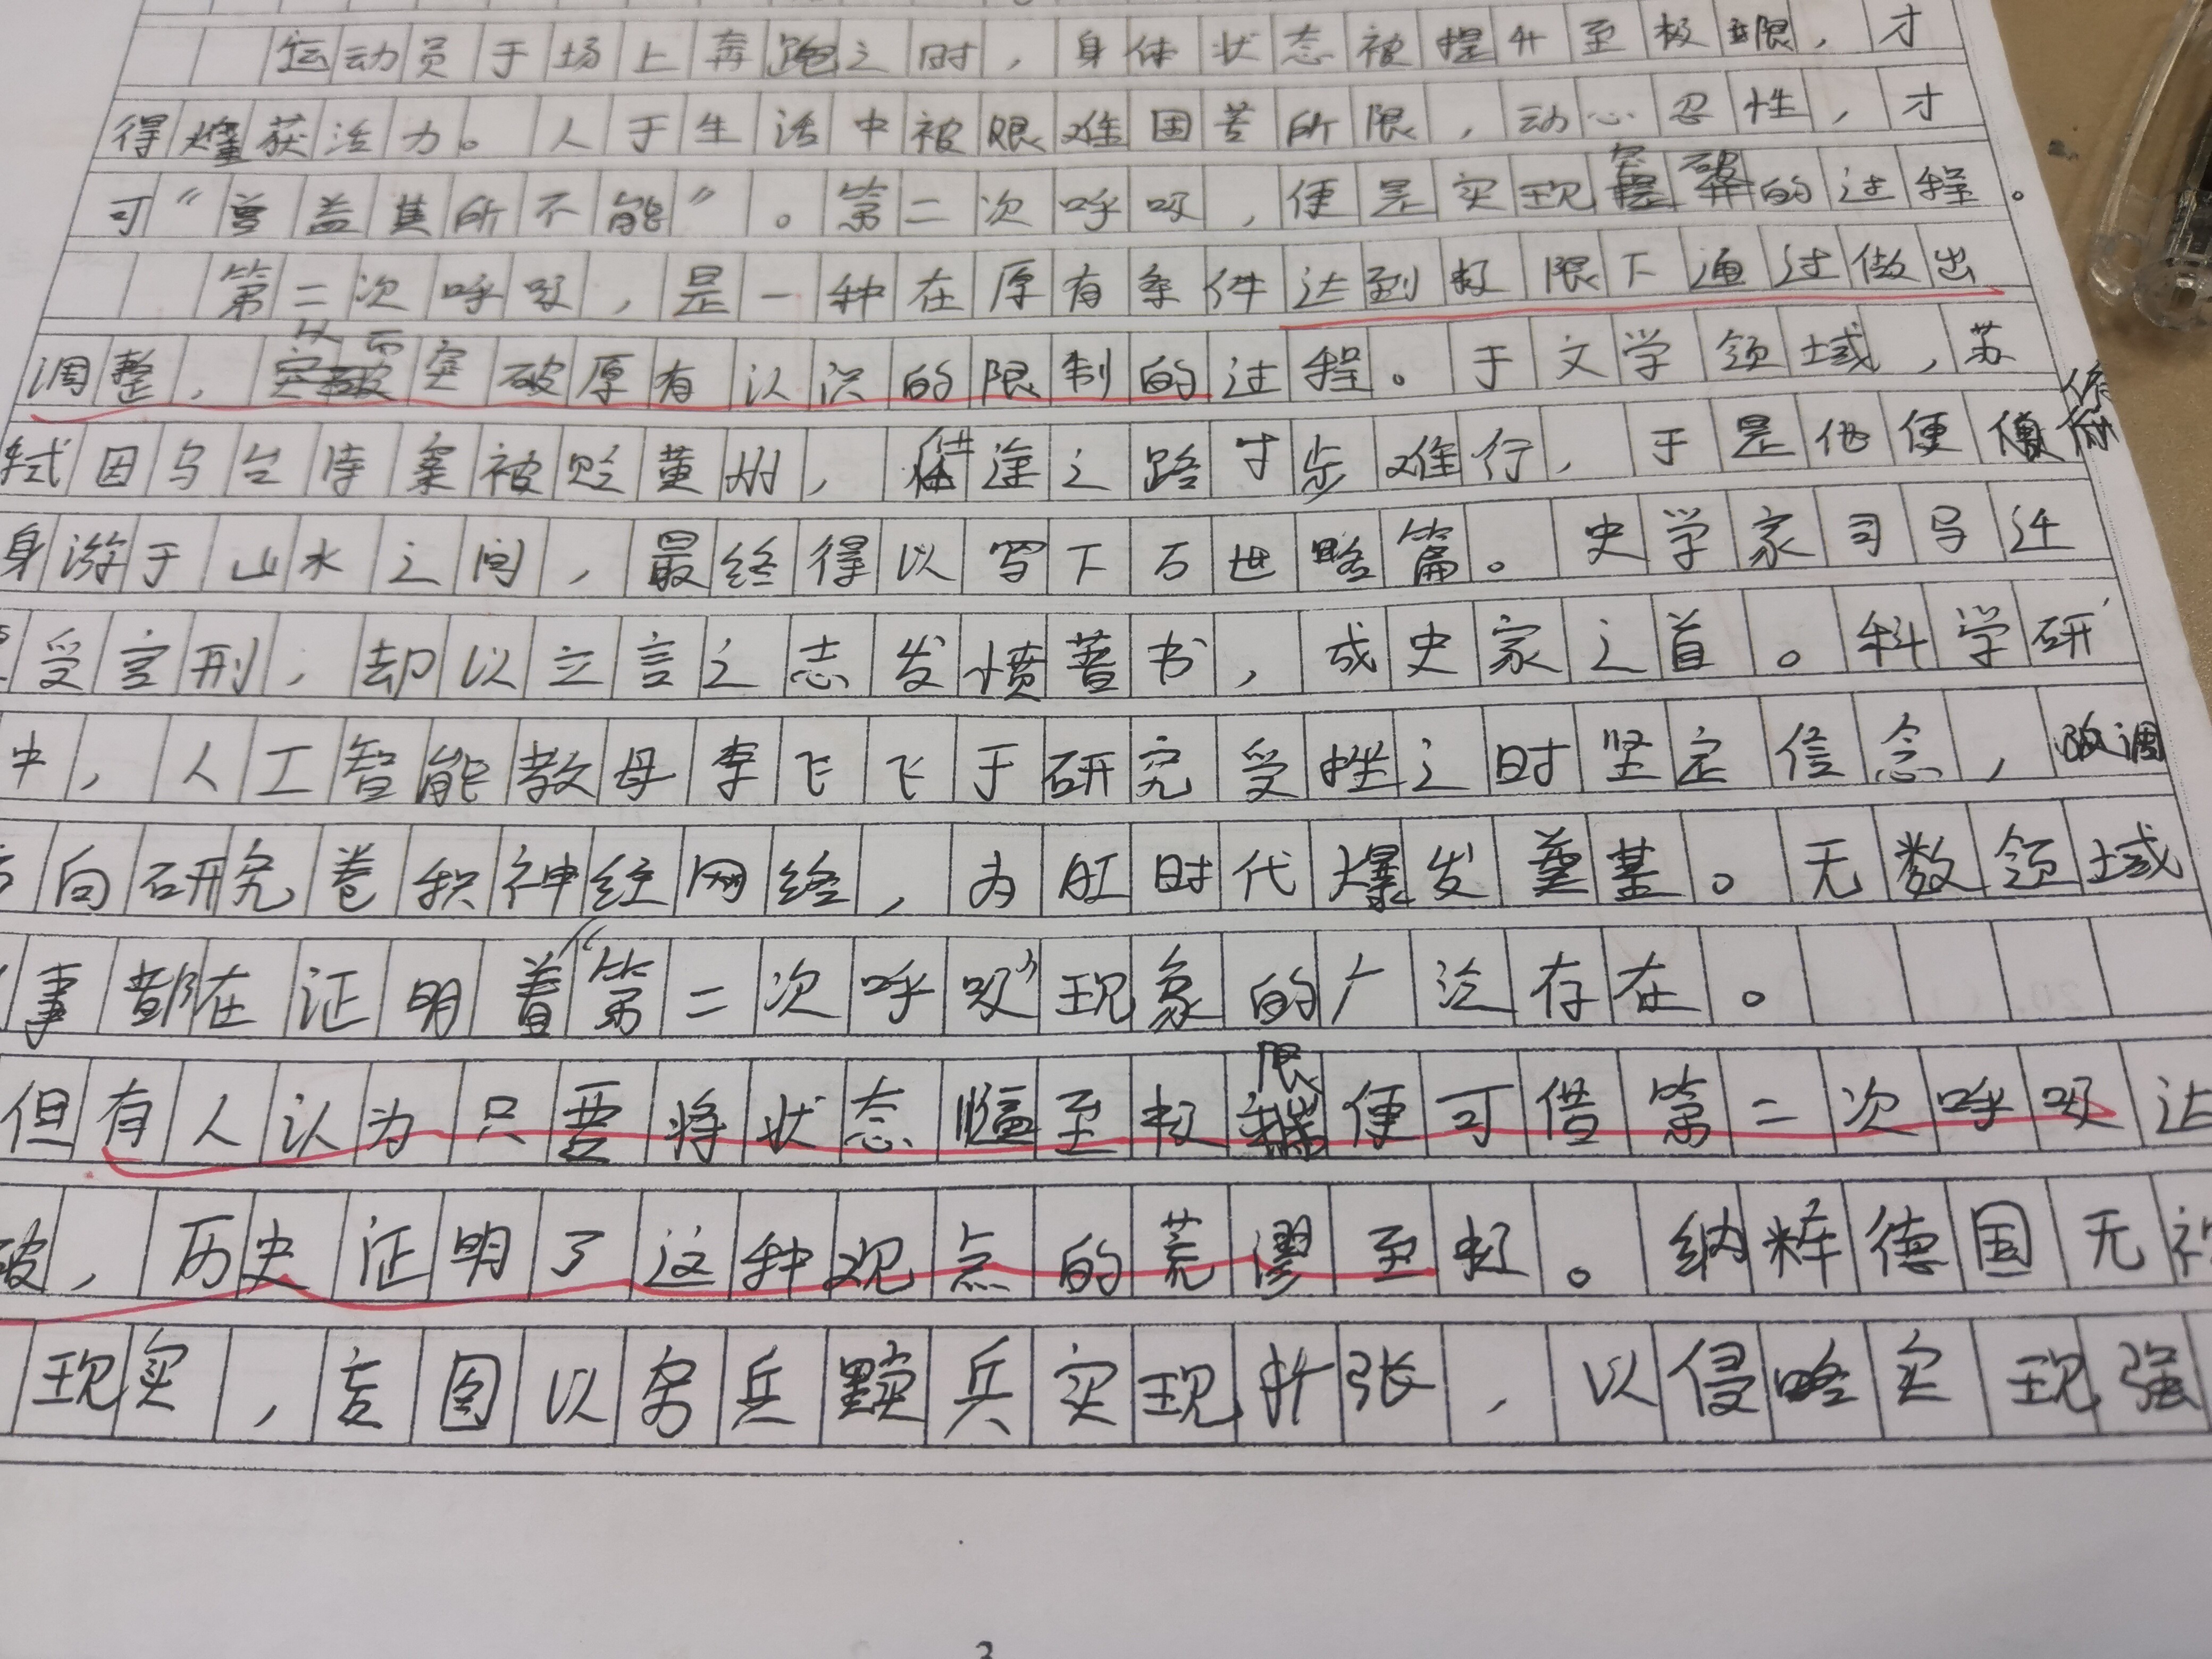 运动员于场上奔跑之时，身体状态被提升至极限，才
得难获活力。人于生活中被艰难困苦所限，动心忍性，才
可“曾益其所不能”。第二次呼吸，便是实现突破的过程。
第二次呼吸，是一种在原有条件达到极限下通过做出
调整，从而突破原有认识的限制的过程。于文学领域，苏
轼因乌台诗案被贬黄州，仕途之路寸步难行，于是他便
身游于山水之间，最终得以写下万世略篇。史学家司马迁
受宫刑，却以立言之志发愤著书，成史家之首。科学研
中，人工智能教母李飞飞于研究受挫之时坚定信念，改调
向研究卷积神经网络，为AI时代爆发奠基。无数领域
事都在证明着“第二次呼吸”现象的广泛存在。
但有人认为只要将状态临至极限便可借第二次呼吸达
破，历史证明了这种观点的荒谬至极。纳粹德国无视
现实，妄图以穷兵黩兵实现扩张，以侵略实现强
3